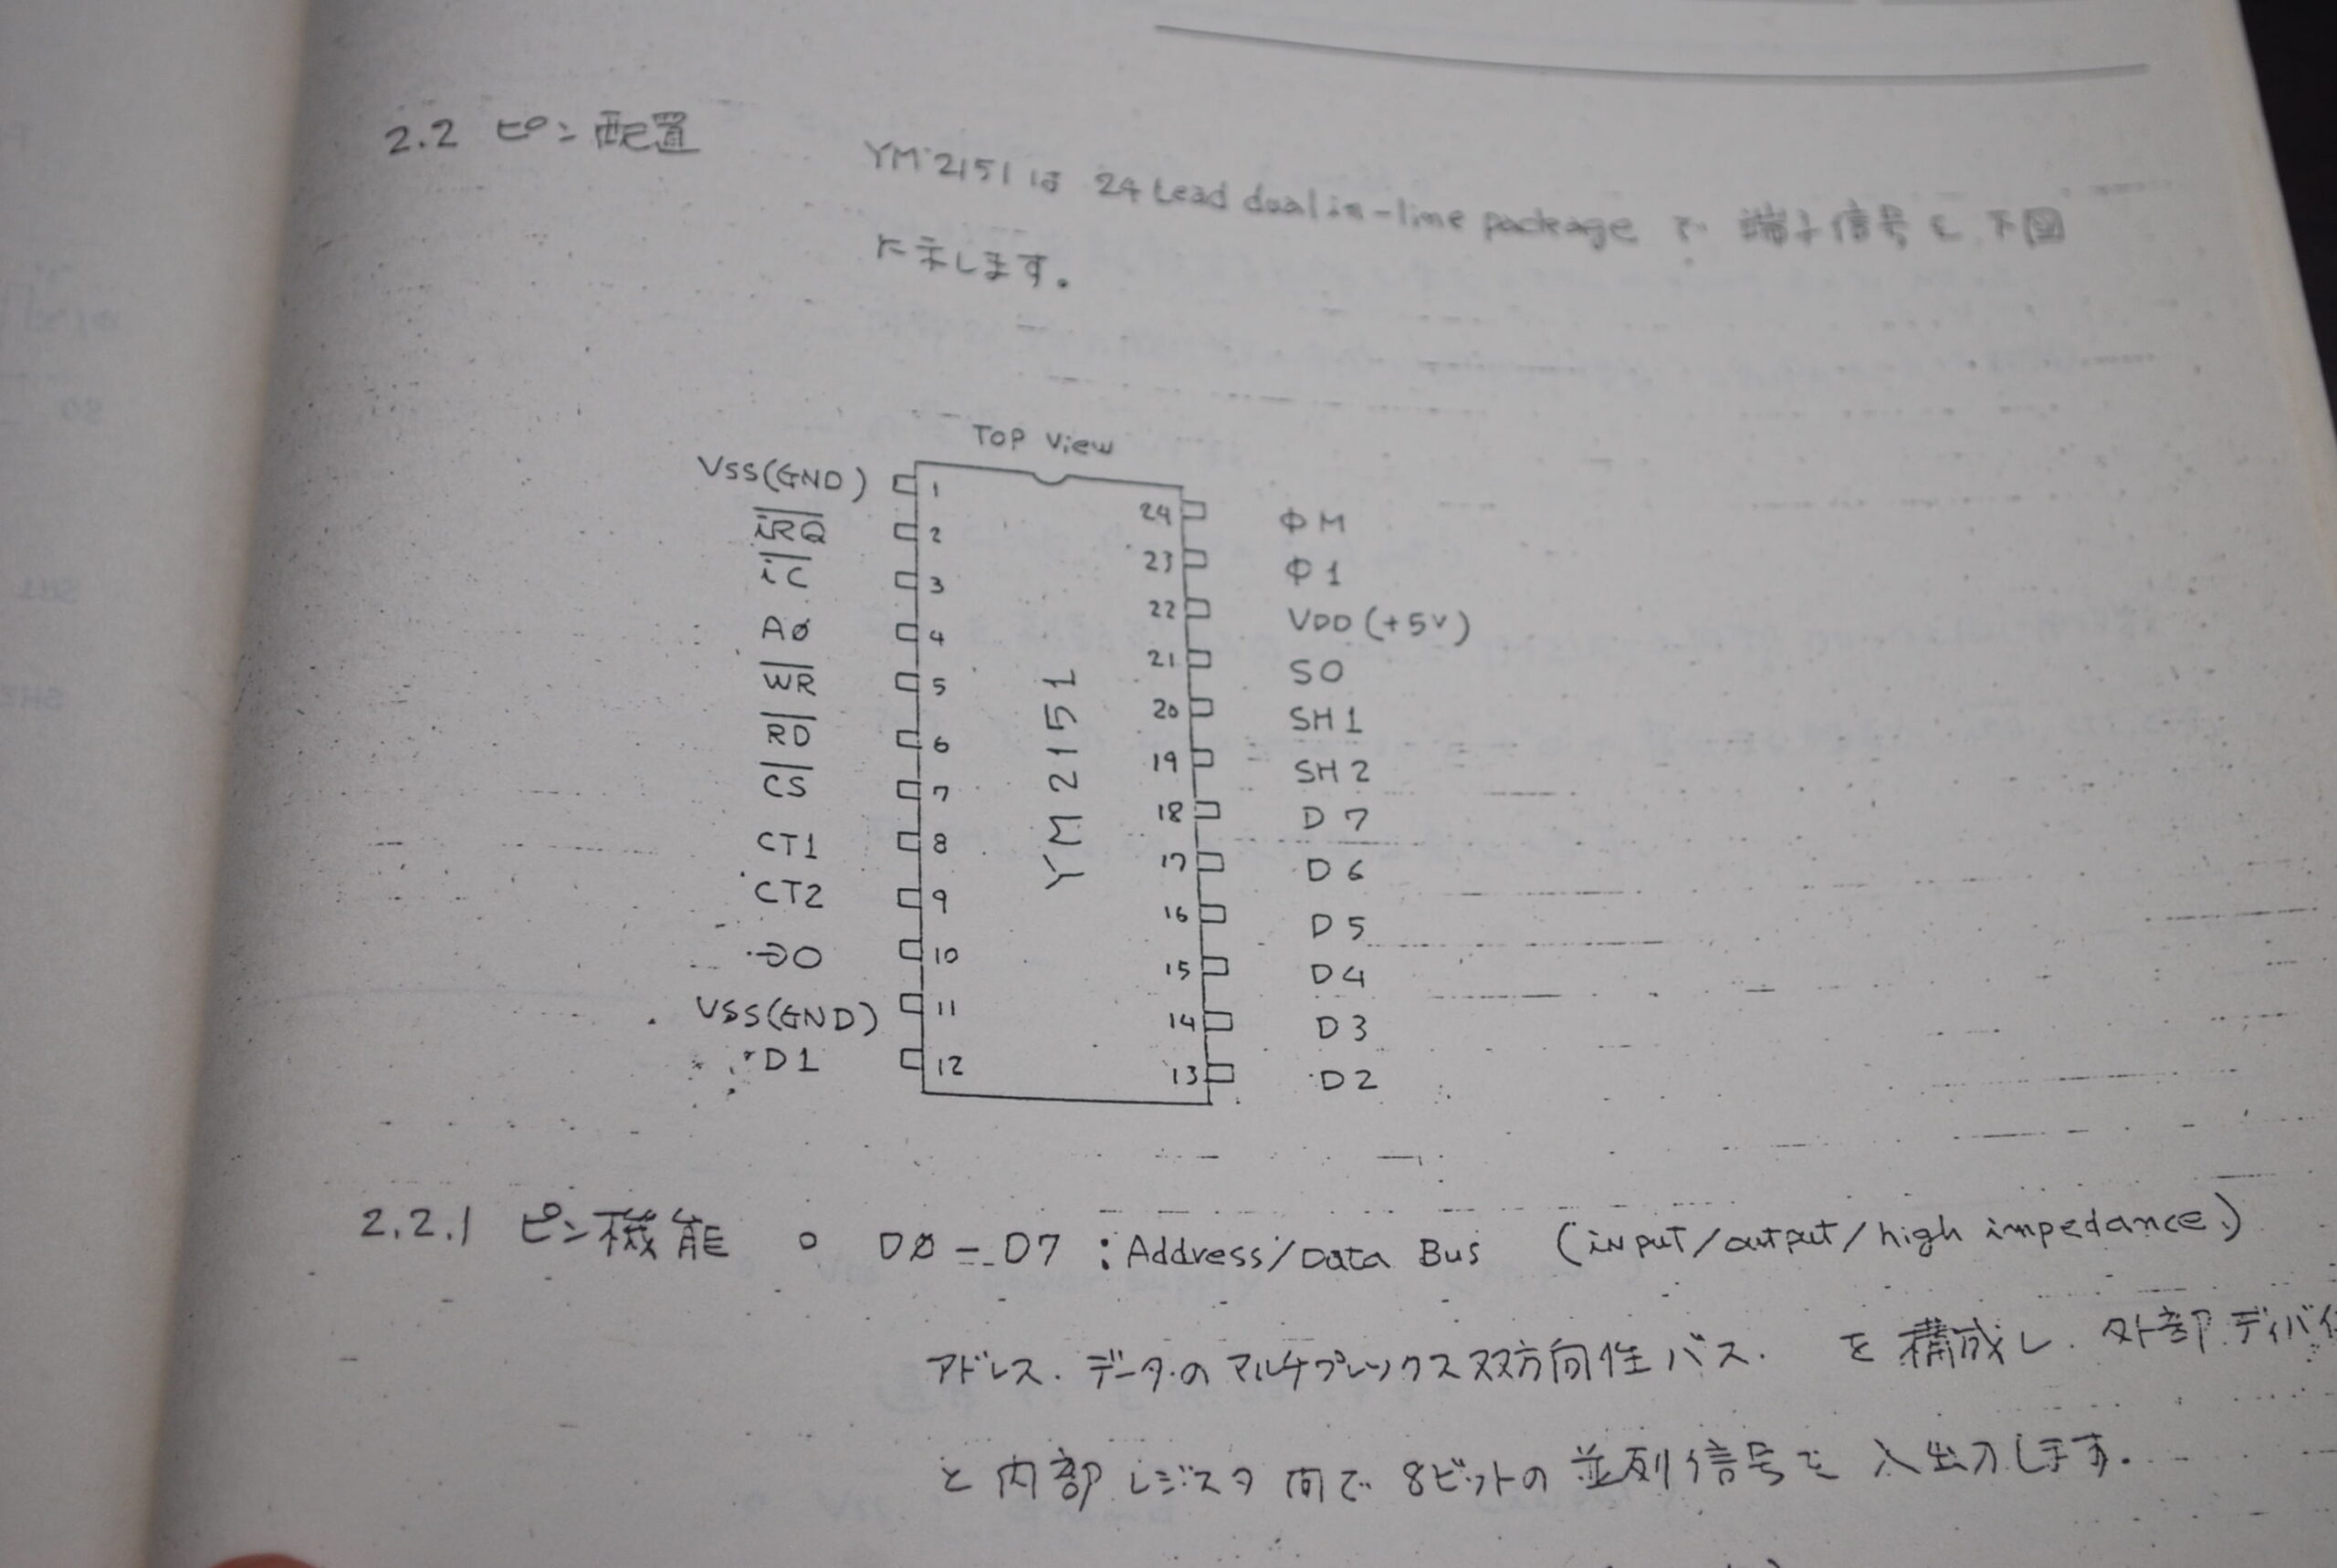 2.2 ピン配置
YM2151は 24 Lead dual in-line package で 端子信号を 下図
に示します。
Top View
VSS(GND) 1
24 ΦM
i̅R̅Q̅ 2
23 Φ1
i̅C̅ 3
22 VDD(+5V)
A0 4
21 SO
W̅R̅ 5
20 SH1
R̅D̅ 6
19 SH2
C̅S̅ 7
18 D7
CT1 8
17 D6
CT2 9
16 D5
D0 10
15 D4
VSS(GND) 11
14 D3
D1 12
13 D2
YM2151
2.2.1 ピン機能 ○ D0 - D7 : Address/Data Bus (input/output/high impedance)
アドレス.データのマルチプレックス双方向性バス. を構成し.外部ディバイ
と内部レジスタ間で 8ビットの並列信号を入出力します.